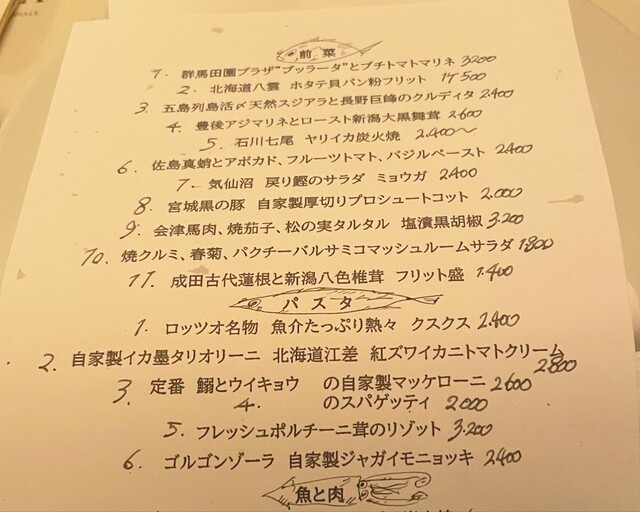 前菜
1. 群馬田園プラザ"ブッラータ"とプチトマトマリネ 3200
2. 北海道八雲 ホタテ貝パン粉フリット 1ケ500
3. 五島列島活〆天然スジアラと長野巨峰のクルディタ 2.400
4. 豊後アジマリネとロースト新潟大黒舞茸 2.600
5. 石川七尾 ヤリイカ炭火焼 2.200〜
6. 佐島真蛸とアボカド、フルーツトマト、バジルペースト 2400
7. 気仙沼 戻り鰹のサラダ ミョウガ 2400
8. 宮城黒の豚 自家製厚切りプロシュートコット 2.000
9. 会津馬肉、焼茄子、松の実タルタル 塩漬黒胡椒 3.200
10. 焼クルミ、春菊、パクチーバルサミコマッシュルームサラダ 1.800
11. 成田古代蓮根と新潟八色椎茸 フリット盛 1.400
パスタ
1. ロッツオ名物 魚介たっぷり熱々 クスクス 2.400
2. 自家製イカ墨タリオリーニ 北海道江差 紅ズワイカニトマトクリーム 2.800
3. 定番 鰯とウイキョウ の自家製マッケローニ 2600
4. のスパゲッティ 2000
5. フレッシュポルチーニ茸のリゾット 3.200
6. ゴルゴンゾーラ 自家製ジャガイモニョッキ 2.400
魚と肉